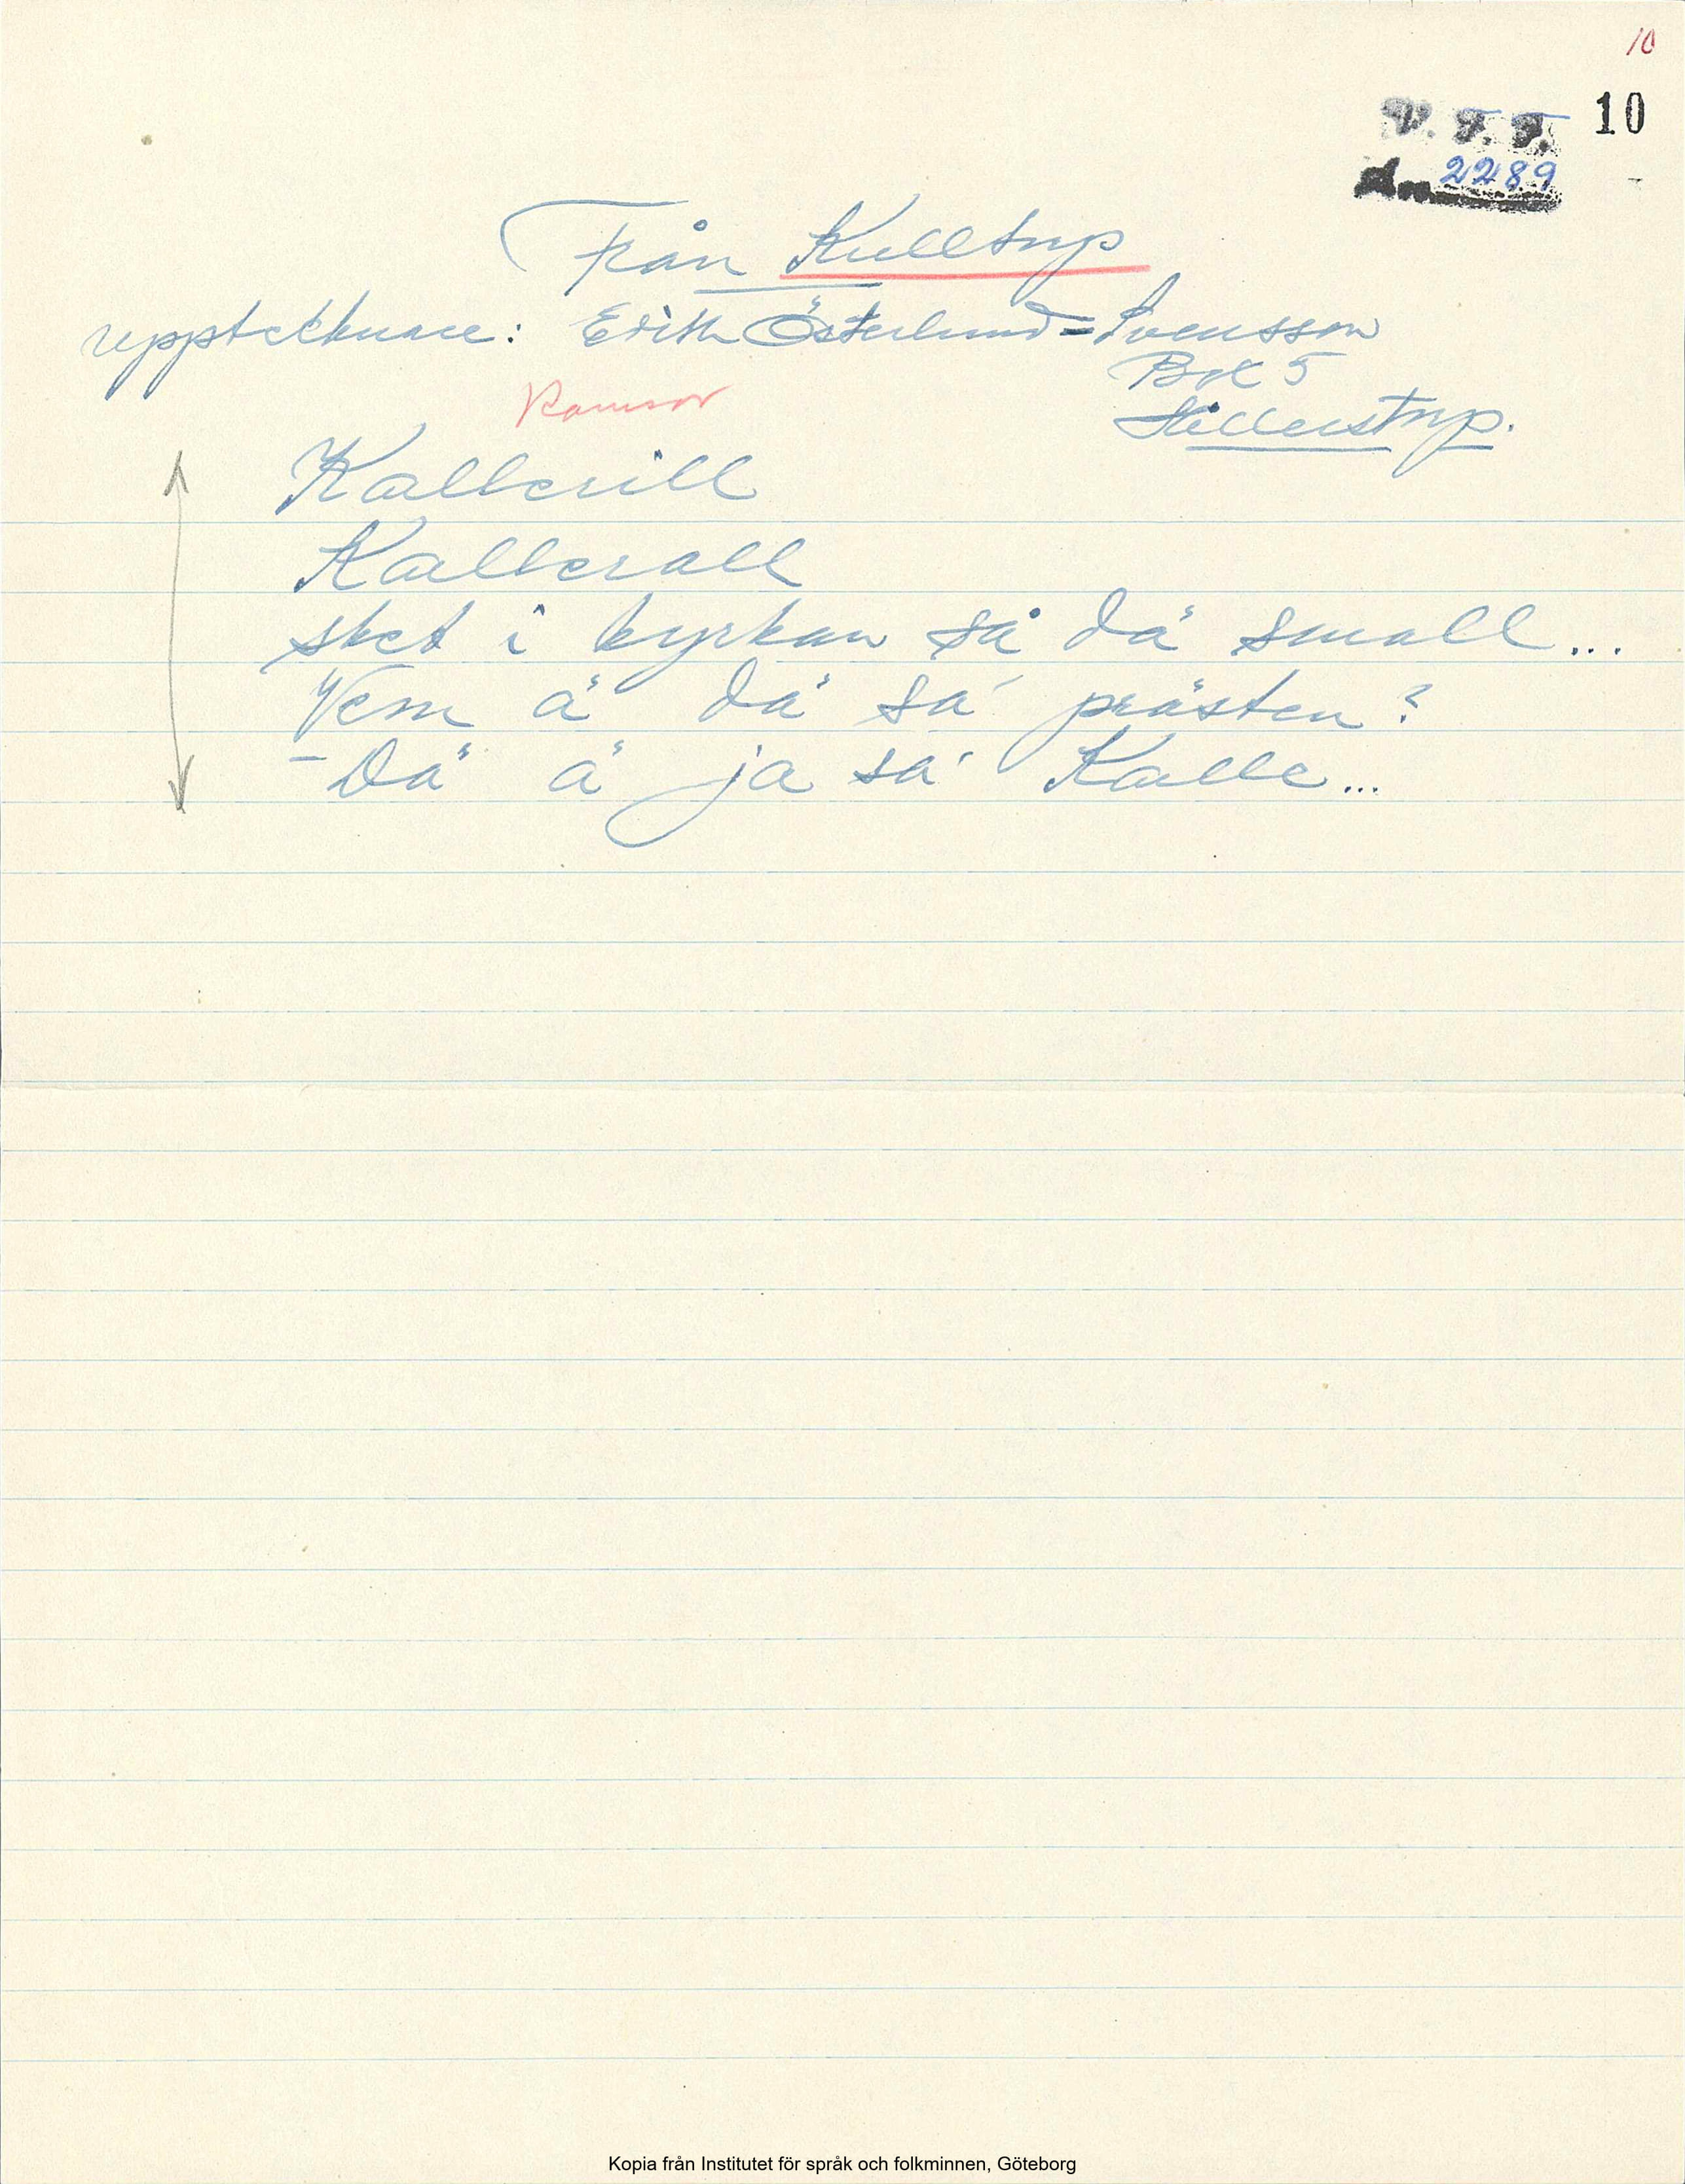 10
V. F. F. 10
2289
Från Kulltorp
upptecknare: Edith Österlund=Svensson
Box 5
Hillerstorp.
Ramsor
Kallerill
Kallerall
sket i kyrkan så dä small...
Vem ä dä sa' prästen?
- Dä ä ja sa' Kalle...
Kopia från Institutet för språk och folkminnen, Göteborg